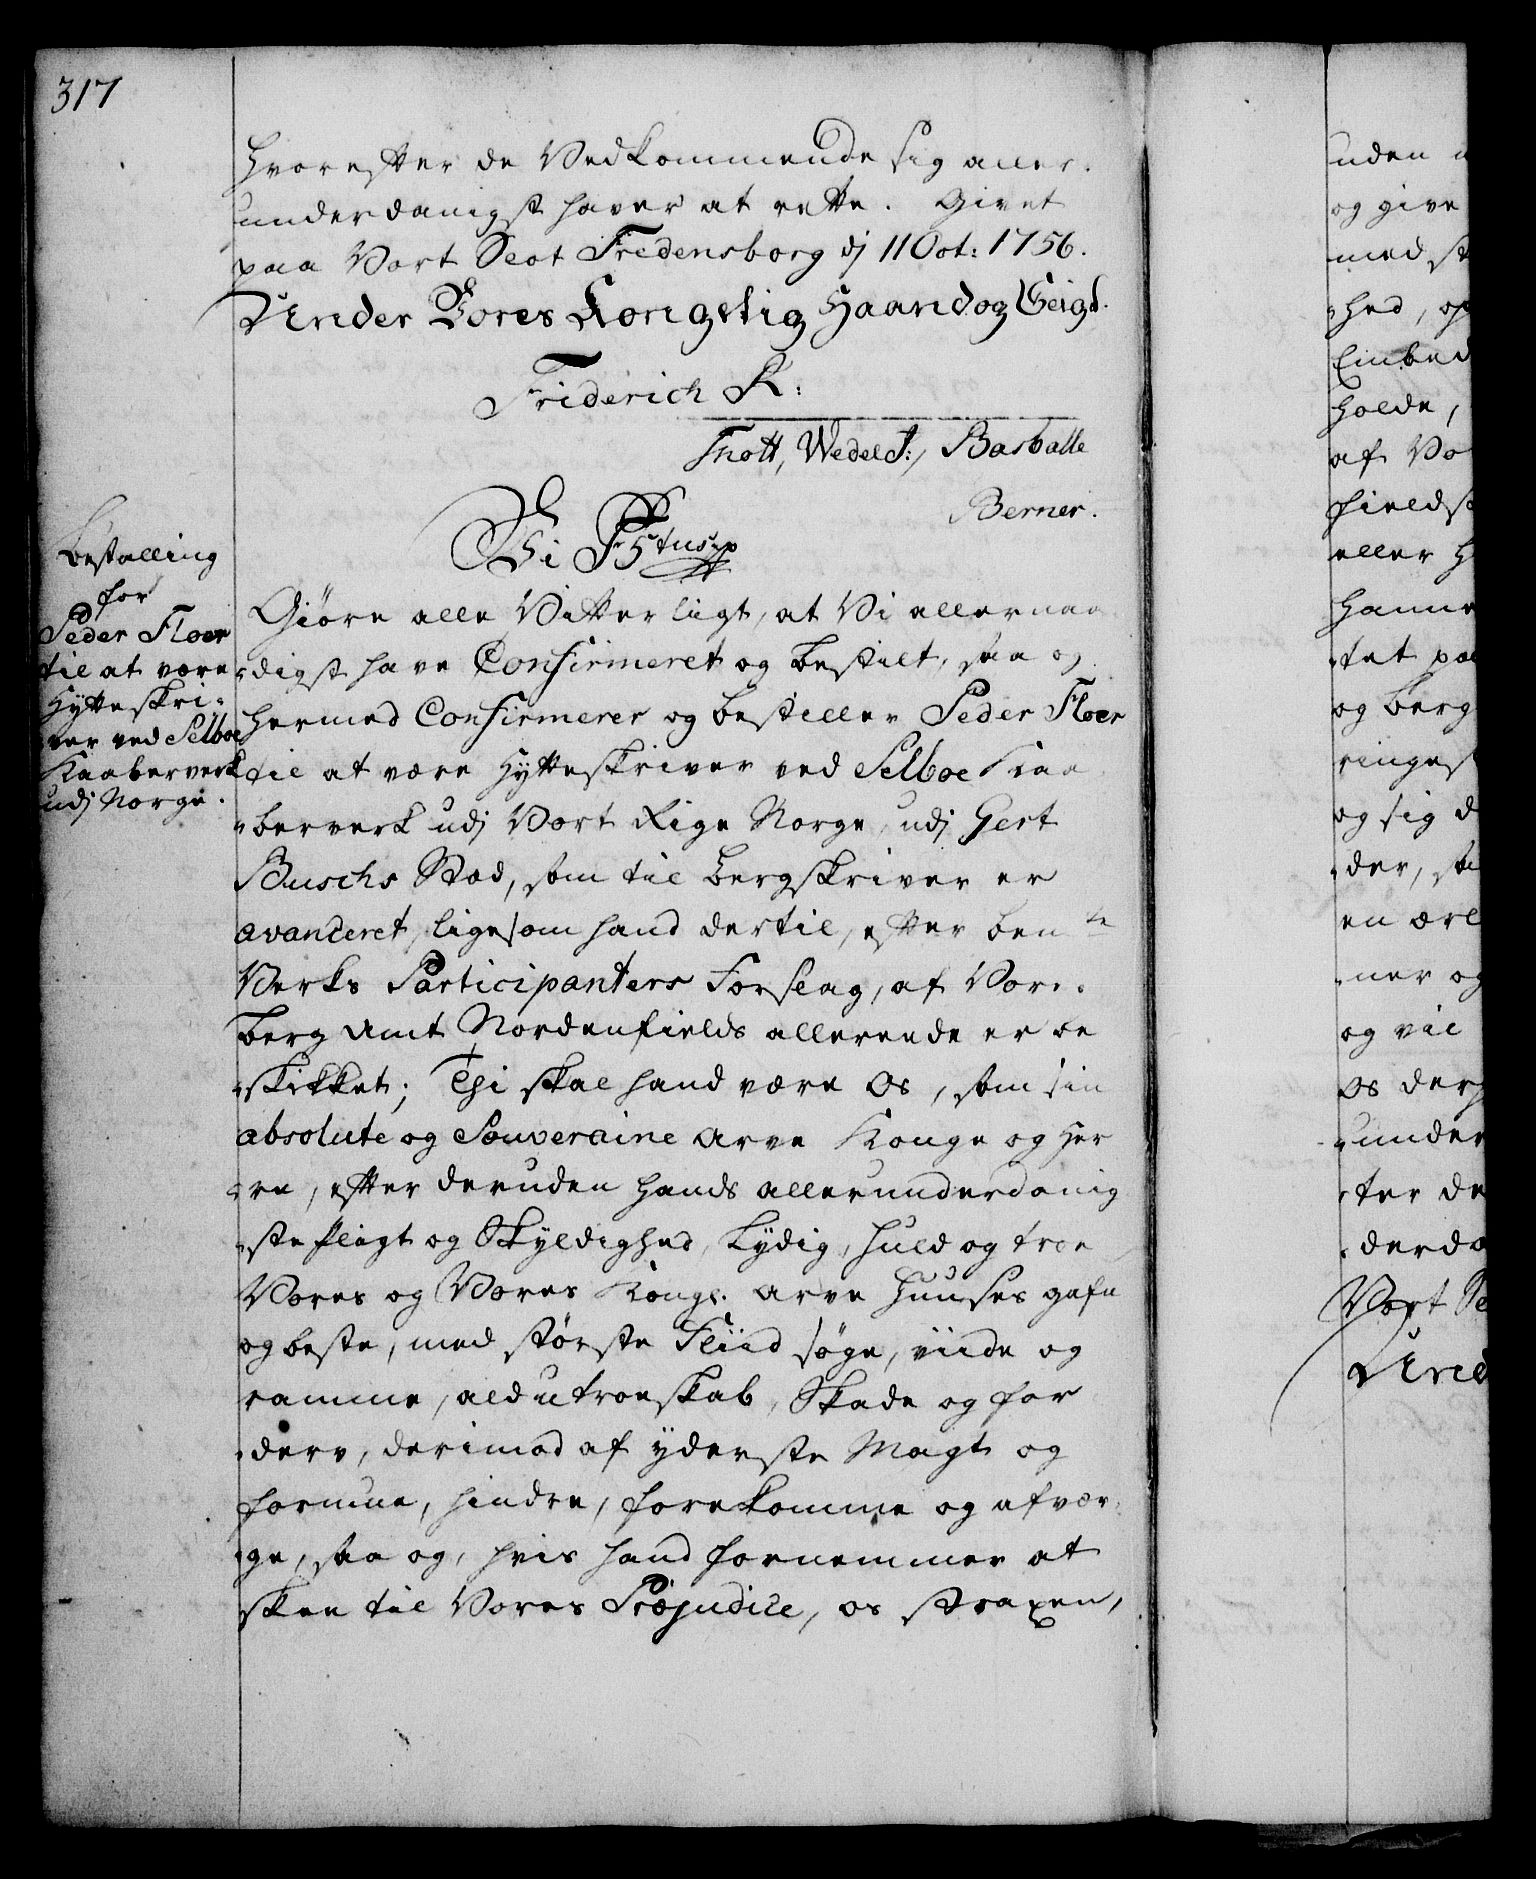 317
hvorefter de Vedkommende sig aller-
underdanigst haver at rette. Givet
paa Vort Slot Fredensborg dj 11 Oct: 1756.
Under Vores Kongelig Haand og Seigl.
Friderich R:
Thott, Wedel J:, Barballe
Berner.
Bestalling
for
Peder Floer
til at være
Hytteskri-
ver ved Selboe
Kaaberverk
udj Norge.
Vi Fr 5tus
Giöre alle Vitterligt, at Vi allernaa
-digst have Confirmeret og bestilt, saa og
hermed Confirmerer og bestiller Peder Floer
til at være Hytteskriver ved Selboe Kaa
-berverk udj Vort Rige Norge, udj Gert
Buschs Stæd, som til Bergskriver er
avanceret, ligesom hand dertil, efter bemte
Verks Participanters Forslag, af Vore
berg Amt Nordenfields allerede er be
-skikket; Thi skal hand være Os, som sin
absolute og Souveraine Arve Konge og Her
-re, efter deruden hands allerunderdanig
-ste Pligt og Skyldighed, Lydig, huld og troe
Vores og Vores Kongl. Arve Huuses gafn
og beste, med största Fliid söge, viide og
ramme, ald utroeskab, Skade og for
-derv, derimod af yderste Magt og
formue, hindre, forekomme og afvær-
-ge, saa og, hvis hand fornemmer at
skee til Vores Præjudice, os straxen,
uden
og give
med st
-hed, op
Embed
holde,
af Vo
fieldst
eller H
hanne
-tet paa
og berg
ringes
og sig d
-der, sa
en ærl
-ner og
og vil
os derf
-under
-ter de
-derda
Vort Sl
Und